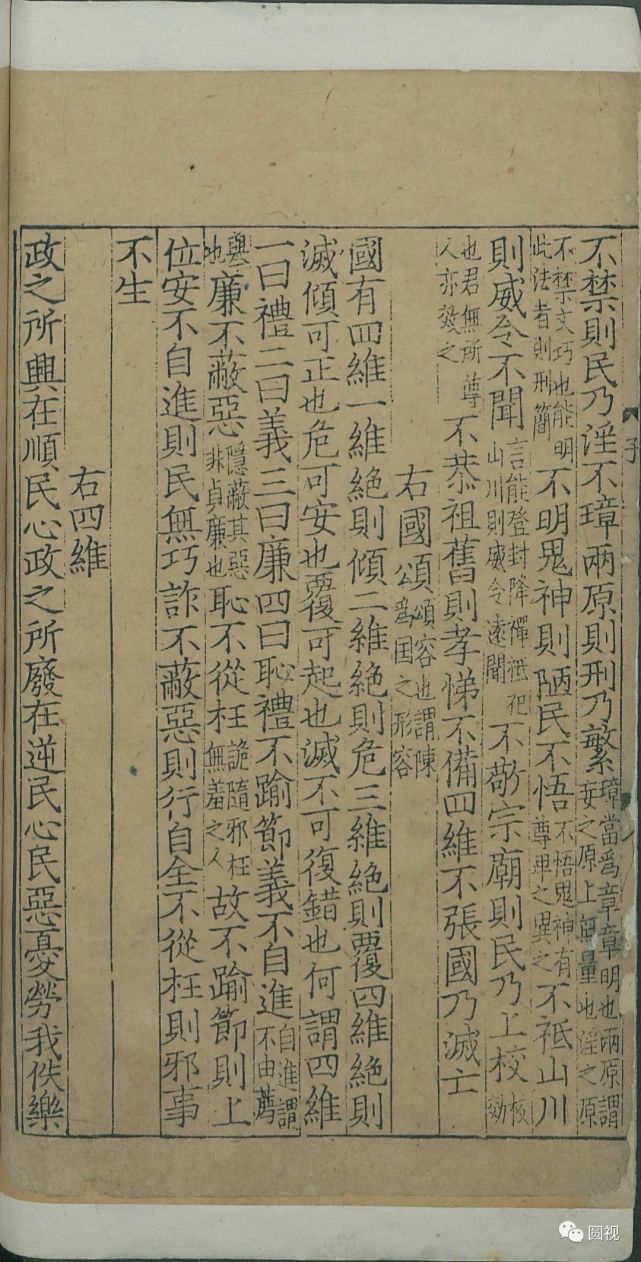 不禁則民乃淫不璋兩原則刑乃繁璋當爲章章明也兩原謂妄之原上無量也淫之原
不禁文巧也能明此法者則刑簡不明鬼神則陋民不悟不悟鬼神有尊卑之異之不祗山川
則威令不聞言能登封降禪祗祀山川則威令遠聞不敬宗廟則民乃上校校効
也君無所尊人亦效之不恭祖舊則孝悌不備四維不張國乃滅亡
右國頌頌容也謂陳爲国之形容
國有四維一維絶則傾二維絶則危三維絶則覆四維絶則
滅傾可正也危可安也覆可起也滅不可復錯也何謂四維
一曰禮二曰義三曰廉四曰恥禮不踰節義不自進自進謂不由薦
舉也廉不蔽惡隱蔽其惡非貞廉也恥不從枉詭隨邪枉無羞之人故不踰節則上
位安不自進則民無巧詐不蔽惡則行自全不從枉則邪事
不生
右四維
政之所興在順民心政之所廢在逆民心民惡憂勞我佚樂
圆视